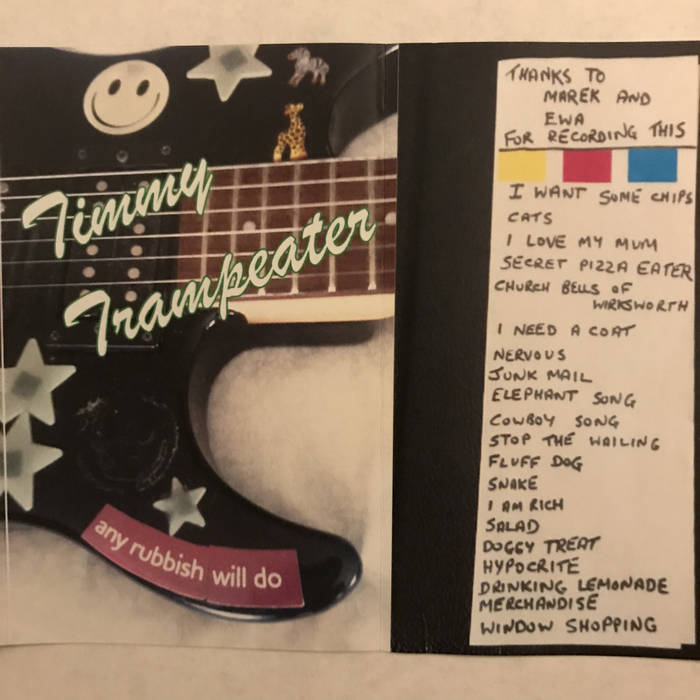 Timmy
Trampeater
any rubbish will do
THANKS TO
MAREK AND
EWA
FOR RECORDING THIS
I WANT SOME CHIPS
CATS
I LOVE MY MUM
SECRET PIZZA EATER
CHURCH BELLS OF
WIRKSWORTH
I NEED A COAT
NERVOUS
JUNK MAIL
ELEPHANT SONG
COWBOY SONG
STOP THE WAILING
FLUFF DOG
SNAKE
I AM RICH
SALAD
DOGGY TREAT
HYPOCRITE
DRINKING LEMONADE
MERCHANDISE
WINDOW SHOPPING